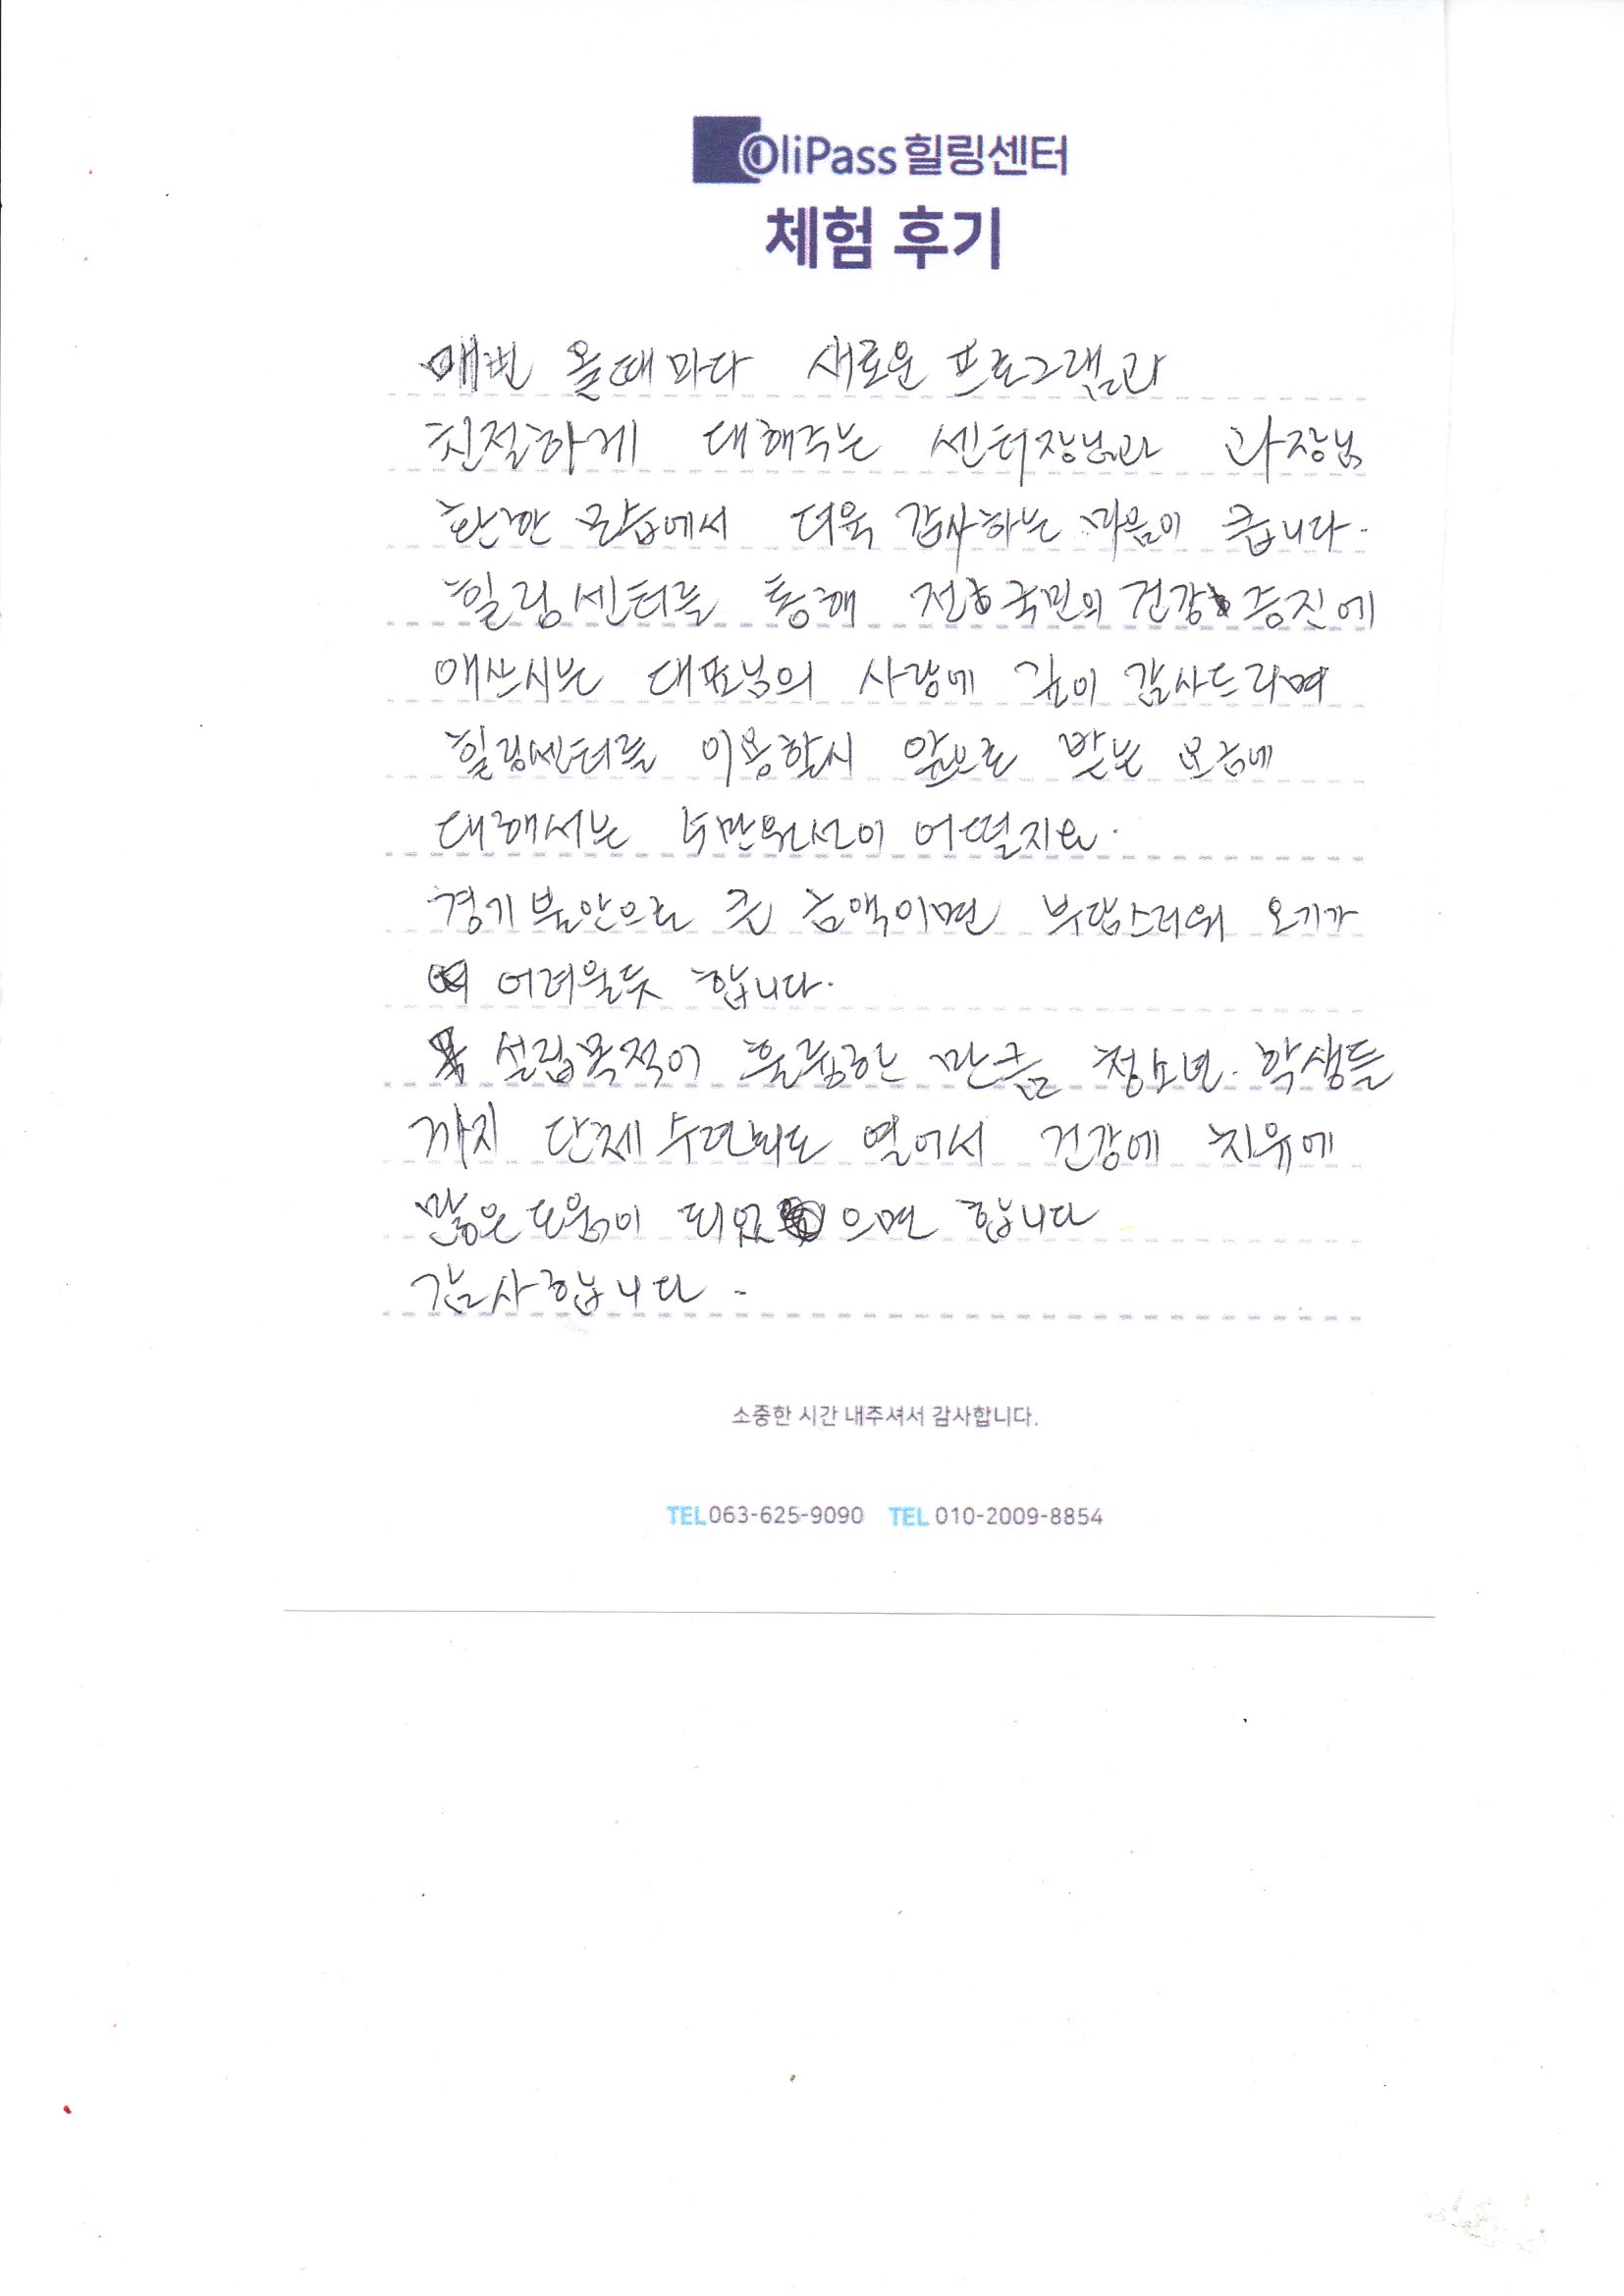 OliPass 힐링센터
체험 후기
매번 올때마다 새로운 프로그램과
친절하게 대해주는 센터장님과 과장님
환한 모습에서 더욱 감사하는 마음이 큽니다.
힐링센터를 통해 전국민의 건강증진에
애쓰시는 대표님의 사랑에 깊이 감사드리며
힐링센터를 이용할시 앞으로 받는 요금에
대해서는 수만원선이 어떨지요.
경기불안으로 큰 금액이면 부담스러워 오기가
어려울듯 합니다.
설립목적이 훌륭한 만큼 청소년. 학생들
까지 단체 수련회도 열어서 건강에 치유에
많은 도움이 되었으면 합니다
감사합니다.
소중한 시간 내주셔서 감사합니다.
TEL 063-625-9090 TEL 010-2009-8854